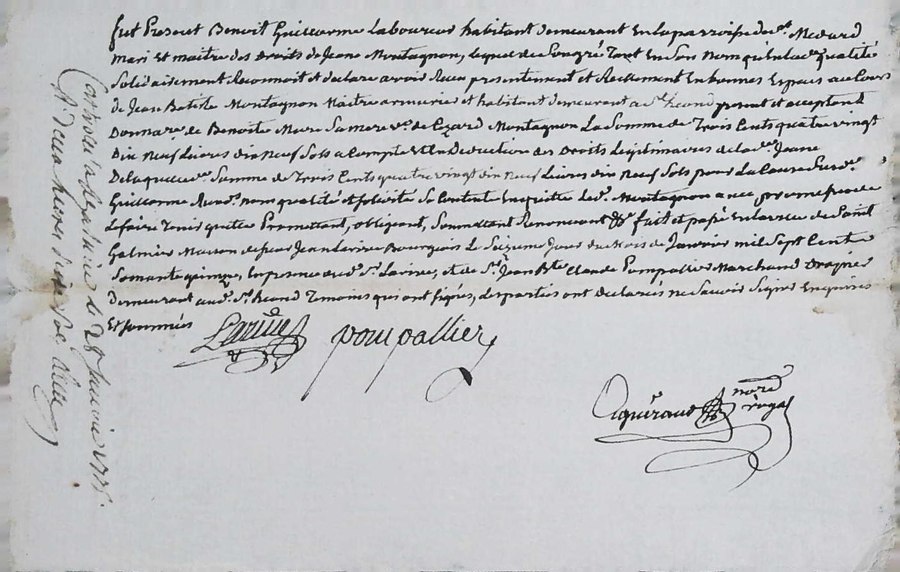 fut Present Benoit Guillorme Laboureur habitant demeurant En la parroisse de St. Medard
mari Et maitre des Droits de Jeane Montagnon, lequel de Son gré Tant en Son Nom qu'En lad. qualité
Solidairement Reconnoit et declare avoir Recu presentement et Réellement En bonnes Especes au Cours
de Jean Batiste Montagnon Maitre armurier et habitant demeurant a St. heand present et acceptant
Donnaire de Benoite More Sa mere Ve. de Cezard Montagnon La Somme de Trois Cents quatre vingt
Dix Neuf Livres dix Neuf Sols a Compte Et En Deduction des Droits Legitimaires de lad. Jeane
De laquelle Somme de Trois Cents quatre vingt dix Neuf Livres dix Neuf Sols pour La Cause
Guillorme aud. nom qualité et Solidité Se Contente En quitte led. Montagnon avec promesse de
le faire Tenir quitte Promettant, obligeant, Soumettant Renonceant &c fait et passé En l'Etude de Saint
Galmier Maison de Sieur Jean Larive Bourgeois Le Seizieme Jour du Mois de Janvier mil Sept Cents
Soixante quinze, En presence dud. Sr. Larive, et de Sr. Jean Bte. Claude Pompallier Marchand Drapier
demeurant aud. St. heand Temoins qui ont signés, les parties ont declarés ne Savoir Signer Enquises
Et Sommées
Larive
pompallier
nore.
royal
Controllé a St. Galmier le 28 Janvier 1775.